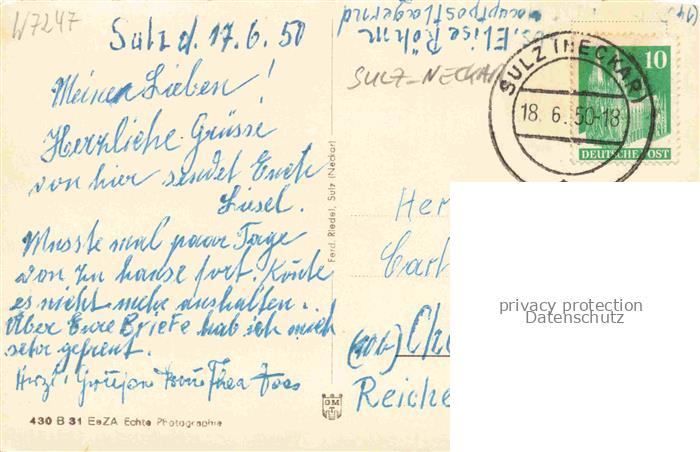 W7247
Sulz d. 17.6.50
Meine Lieben!
Herzliche Grüsse
von hier sendet Euch
Liesel.
Musste mal paar Tage
von zu hause fort. Konte
es nicht mehr aushalten.
Über Eure Briefe hab ich mich
sehr gefreut.
Herzl.
430 B 31 EeZA Echte Photographie
Ferd. Riedel, Sulz (Neckar)
Elise Röhm
Hauptpostlagernd
SULZ-NECKAR
SULZ (NECKAR)
18. 6. 50-18
10
DEUTSCHE POST
Her
Carl
(10b) Che
Reiche
privacy protection
Datenschutz